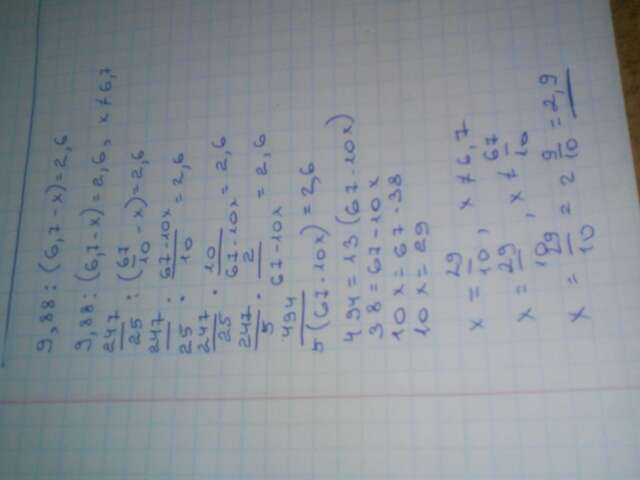 9,88 : (6,7 - x) = 2,6
9,88 : (6,7 - x) = 2,6, x ≠ 6,7
247/25 : (67/10 - x) = 2,6
247/25 : (67-10x)/10 = 2,6
247/25 · 10/(67-10x) = 2,6
247/5 · 2/(67-10x) = 2,6
494/(5(67-10x)) = 2,6
494 = 13(67-10x)
38 = 67-10x
10x = 67-38
10x = 29
x = 29/10, x ≠ 6,7
x = 29/10, x ≠ 67/10
x = 29/10 = 2 9/10 = 2,9